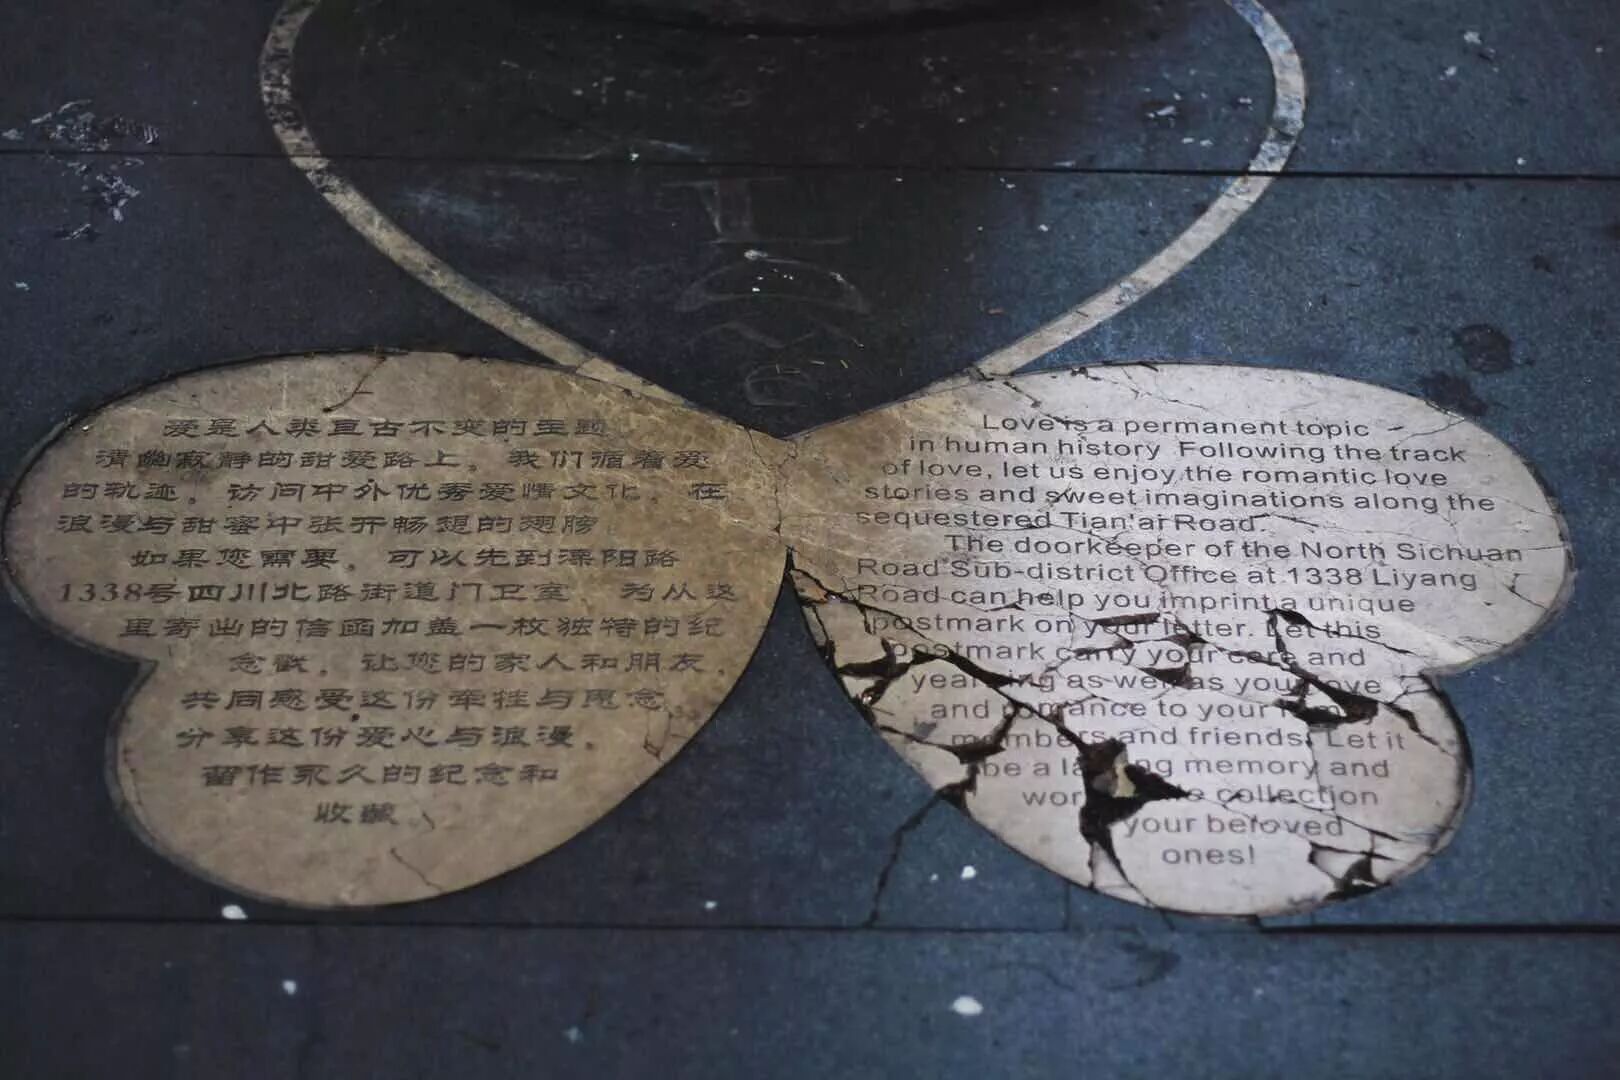 爱是人类亘古不变的主题
清幽寂静的甜爱路上，我们循着爱
的轨迹，访问中外优秀爱情文化，在
浪漫与甜蜜中张开畅想的翅膀
如果您需要，可以先到溧阳路
1338号四川北路街道门卫室，为从这
里寄出的信函加盖一枚独特的纪
念戳，让您的家人和朋友，
共同感受这份牵挂与思念
分享这份爱心与浪漫，
留作永久的纪念和
收藏。
Love is a permanent topic
in human history Following the track
of love, let us enjoy the romantic love
stories and sweet imaginations along the
sequestered Tian'ai Road.
The doorkeeper of the North Sichuan
Road Sub-district Office at 1338 Liyang
Road can help you imprint a unique
postmark on your letter. Let this
postmark carry your care and
yearning as well as your love
and romance to your
members and friends. Let it
be a lasting memory and
collection
your beloved
ones!